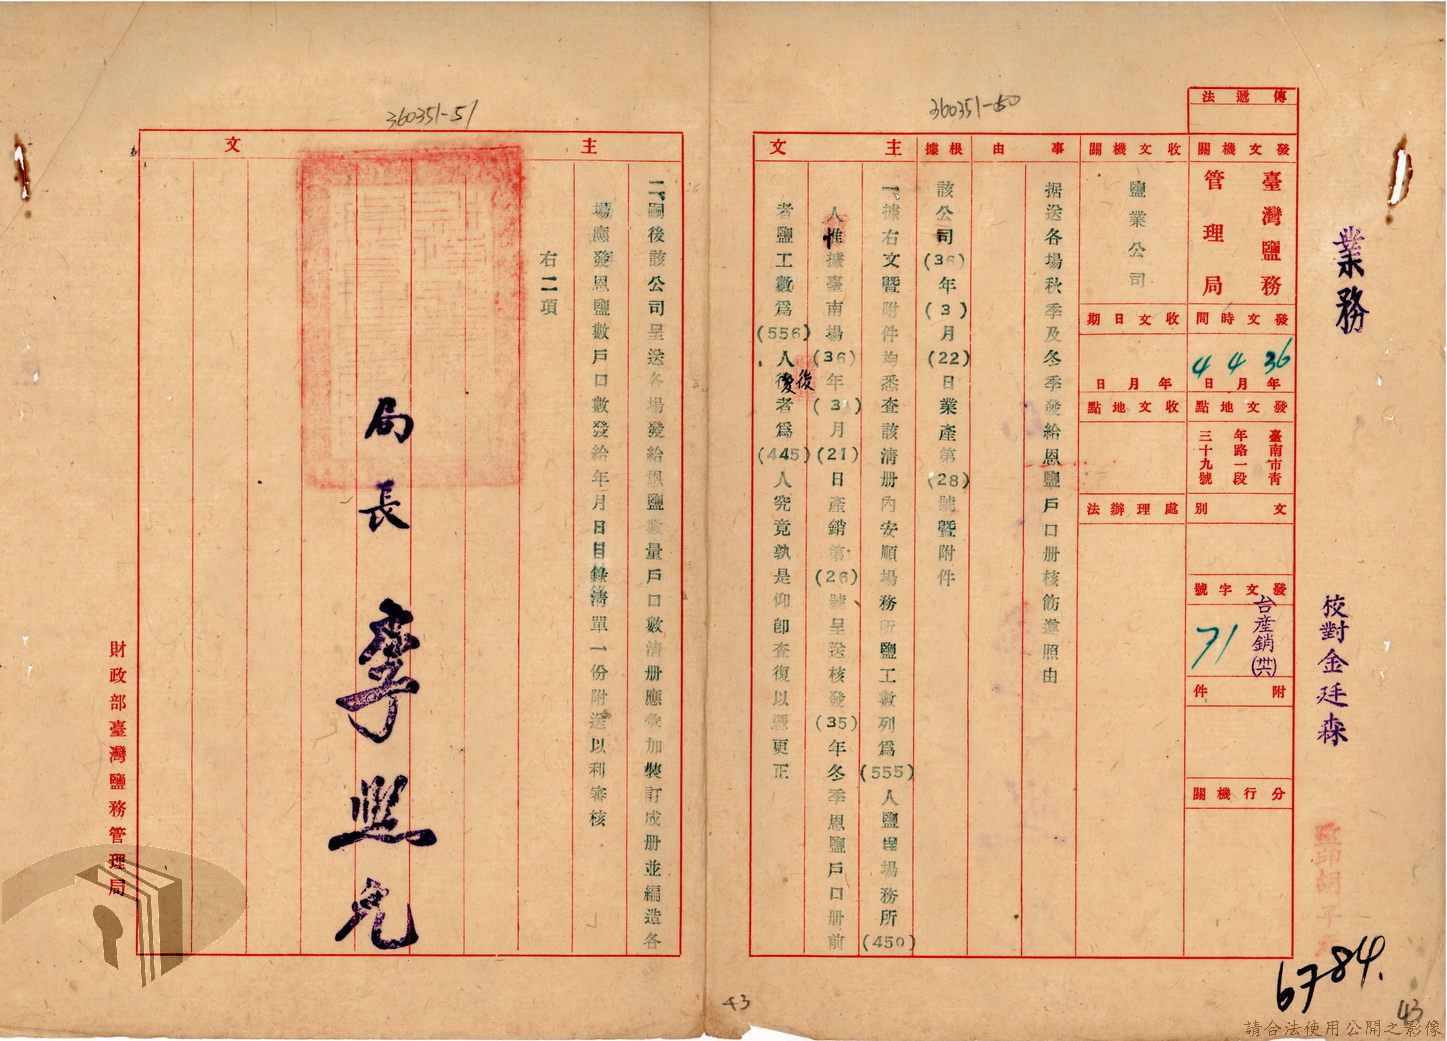 360351-50
傳遞法
發文機關
臺灣鹽務
管理局
發文時間
36年4月4日
發文地點
臺南市青
年路一段
三十九號
文別
發文字號
台產銷(卅六)
71
附件
分行機關
收文機關
鹽業公司
收文日期
年月日
收文地點
處理辦法
事由
据送各場秋季及冬季發給恩鹽戶口册核飭遵照由
根據
該公司(36)年(3)月(22)日業產第(28)號暨附件
主文
一、據右文暨附件均悉查該清册內安順場務所鹽工數列爲(555)人鹽埕場務所(450)
人惟據臺南場(36)年(3)月(21)日產銷第(26)號呈送核發(35)年冬季恩鹽戶口册前
者鹽工數爲(556)人後者爲(445)人究竟孰是仰卽查復以憑更正
業務
校對金廷森
監印胡
6784.
43
43
360351-51
主文
二、嗣後該公司呈送各場發給恩鹽數量戶口數清册應彙加裝訂成册並編造各
場應發恩鹽數戶口數發給年月日目錄清單一份附送以利審核
右二項
局長 李
財政部臺灣鹽務管理局
請合法使用公開之影像